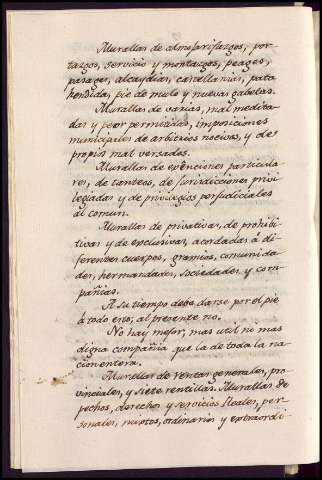 Murallas de almofarifazgos, por-
tazgos, servicio y montazgos, peages,
pasages, alcaydias, castellanias, pata
hendida, pie de mulo y nuevas gabelas.
Murallas de varias, mal medita-
das y peor permitidas, imposiciones
municipales de arbitrios nocivos, y de
propios mal versados.
Murallas de exênciones particula-
res, de tanteos, de Jurisdicciones privi-
legiadas y de privilegios perjudiciales
al comun.
Murallas de privativas, de prohibi-
tivas y de exclusivas, acordadas á di-
ferentes cuerpos, gremios, comunida-
des, hermandades, sociedades y com-
pañias.
A su tiempo debe darse por el pie
à todo eso, al presente no.
No hay mejor, mas util ni mas
digna compañia que la de toda la na-
cion entera.
Murallas de rentas generales, pro-
vinciales, y siete rentillas. Murallas de
pechos, derechos y servicios Reales, per-
sonales, mixtos, ordinarios y extraordi-